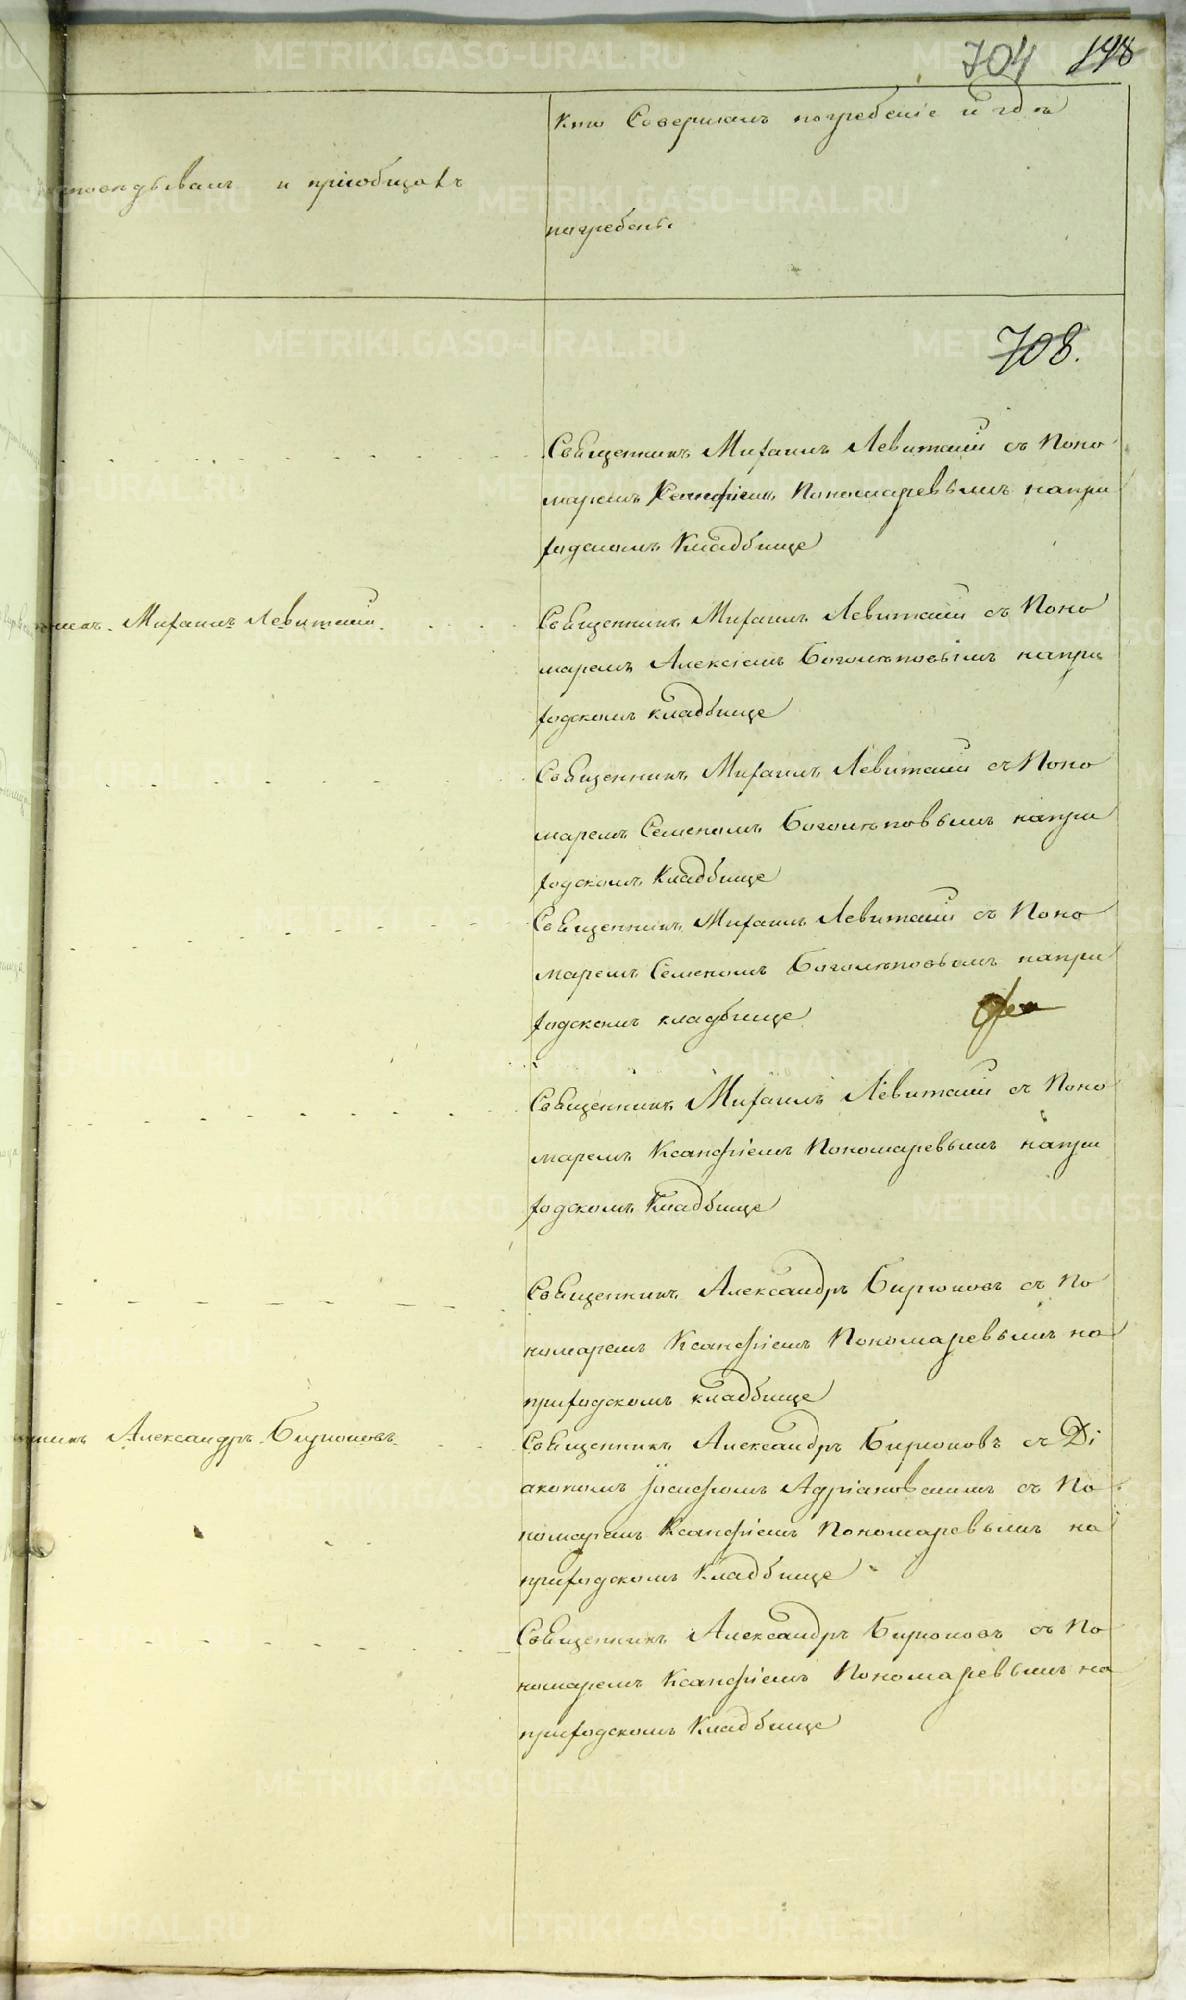 704 148
Кто Совершалъ погребение и гдѣ
исповѣдывалъ и приобщалъ
погребены
708.
Священникъ Михаилъ Левитскій съ Поно
маремъ Ксанфіемъ Пономаревымъ наприходскомъ
ходскомъ Кладбище
Михаилъ Левитскій
Священникъ Михаилъ Левитскій съ Поно
маремъ Алексіемъ Боголеповымъ напри
ходскомъ кладбище
Священникъ Михаилъ Левитскій съ Поно
маремъ Семеномъ Боголеповымъ напри
ходскомъ Кладбище
Священникъ Михаилъ Левитскій съ Поно
маремъ Семеномъ Боголеповымъ напри
ходскомъ кладбище
Священникъ Михаилъ Левитскій съ Поно
маремъ Ксанфіемъ Пономаревымъ напри
ходскомъ Кладбище
Священникъ Александръ Бирюковъ съ По
номаремъ Ксанфіемъ Пономаревымъ на
приходскомъ кладбище
Александръ Бирюковъ
Священникъ Александръ Бирюковъ съ Ді
акономъ Іосифомъ Адріановскимъ съ По
номаремъ Ксанфіемъ Пономаревымъ на
приходскомъ Кладбище
Священникъ Александръ Бирюковъ съ По
номаремъ Ксанфіемъ Пономаревымъ на
приходскомъ Кладбище
METRIKI.GASO-URAL.RU